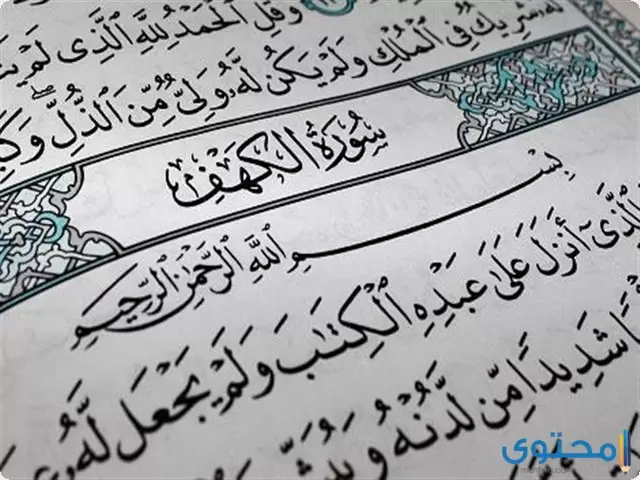 وَقُلِ ٱلْحَمْدُ لِلَّهِ ٱلَّذِى لَمْ
لَهُۥ شَرِيكٌ فِى ٱلْمُلْكِ وَلَمْ يَكُن لَّهُۥ وَلِىٌّ مِّنَ ٱلذُّلِّ ۖ
سُورَةُ الكَهْفِ
بِسْمِ ٱللَّهِ ٱلرَّحْمَٰنِ ٱلرَّحِيمِ
ٱلَّذِىٓ أَنزَلَ عَلَىٰ عَبْدِهِ ٱلْكِتَٰبَ وَلَمْ يَجْعَل لَّهُۥ
شَدِيدًا مِّن لَّدُنْهُ
محتوى